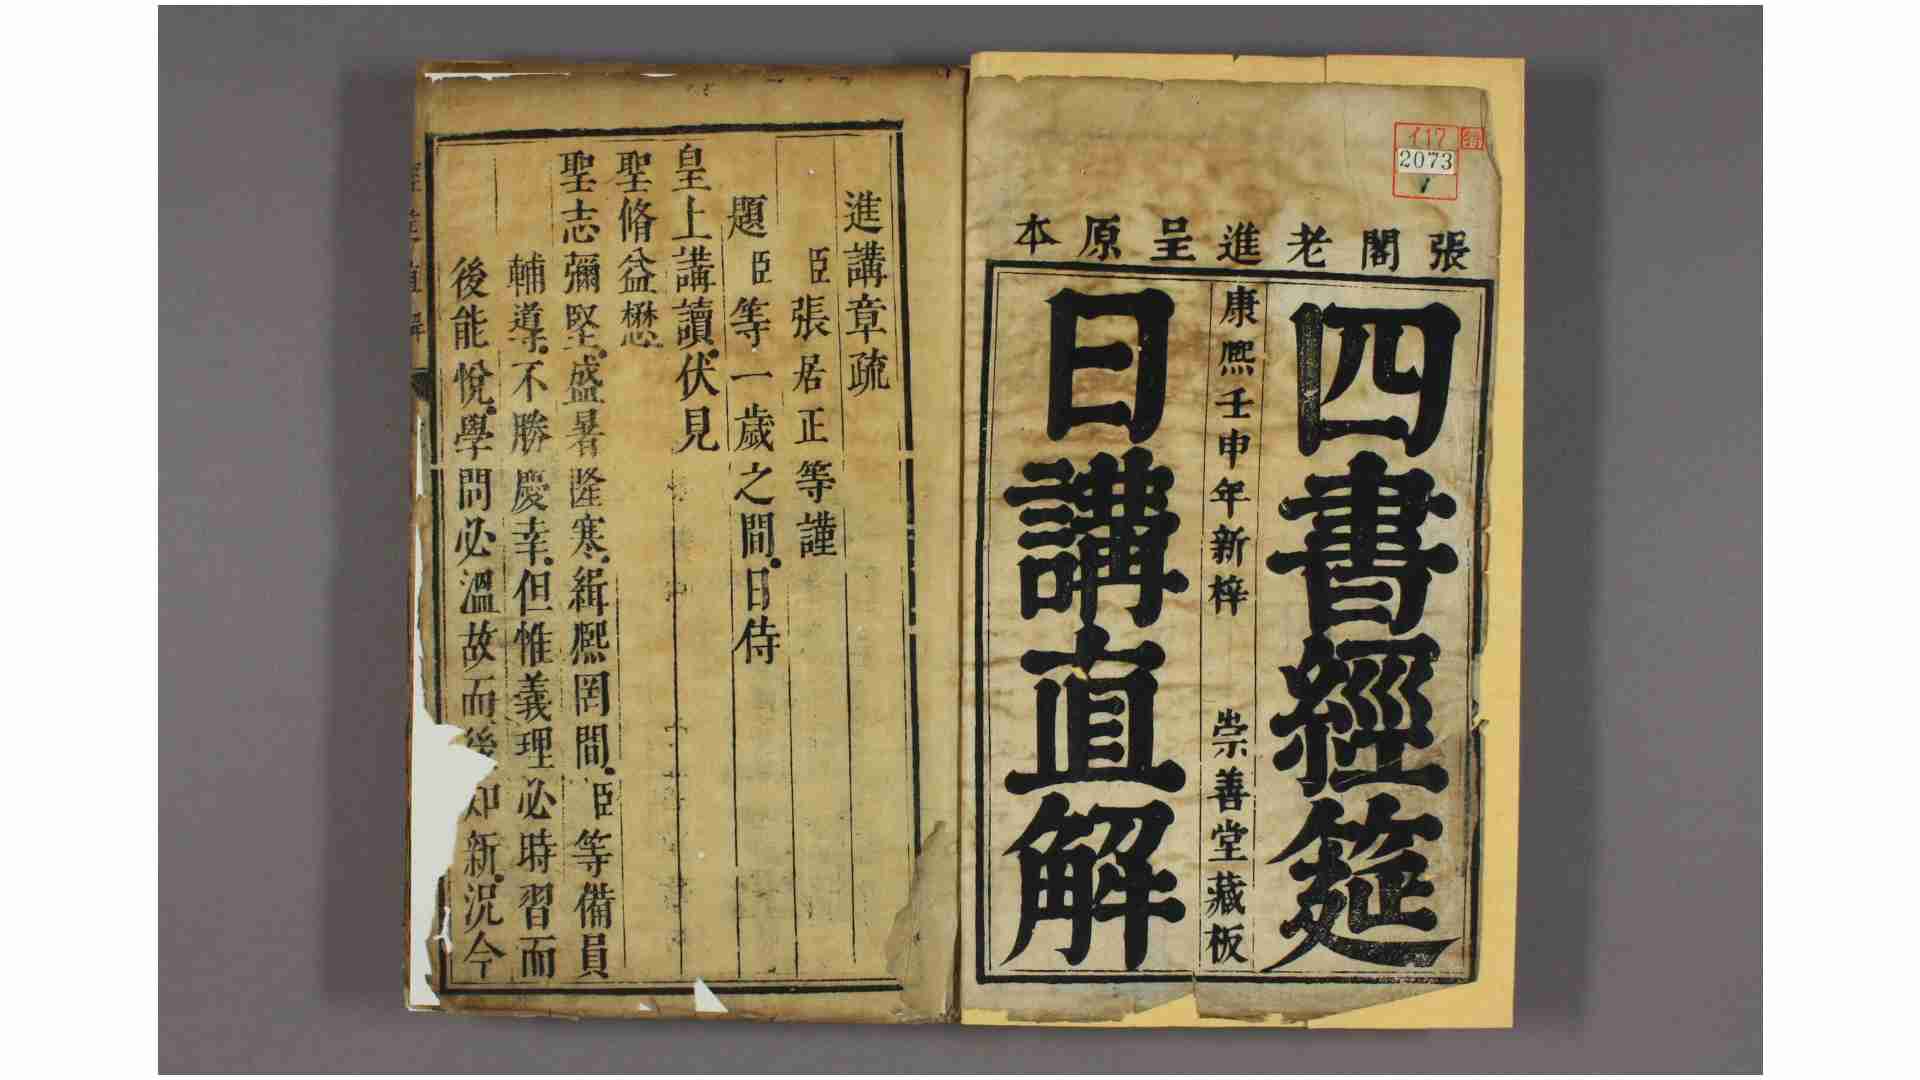 イ17
2073
1
張閣老進呈原本
四書經筵
康熙壬申年新梓 崇善堂藏板
日講直解
進講章疏
臣張居正等謹
題臣等一歲之間日侍
皇上講讀伏見
聖脩益懋
聖志彌堅盛暑隆寒緝熈罔間臣等備員
輔導不勝慶幸但惟義理必時習而
後能悅學問必溫故而後知新況今